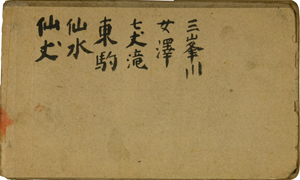 三峯川
女澤
七丈滝
東駒
仙水
仙丈